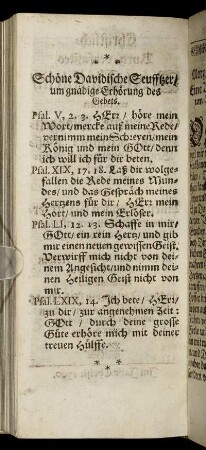 Schöne Davidische Seufftzer/
um gnädige Erhörung des
Gebets.
Psal. V, 2. 3. HErr / höre mein
Wort/ mercke auf meine Rede/
vernimm mein Schreyen/ mein
König und mein GOtt/ denn
ich will ich für dir beten.
Psal. XIX, 17. 18. Laß dir wolge-
fallen die Rede meines Mun-
des/ und das Gespräch meines
Hertzens für dir/ HErr mein
Hort/ und mein Erlöser.
Psal. LI, 12. 13. Schaffe in mir/
GOtt/ ein rein Hertz/ und gib
mir einen neuen gewissen Geist.
Verwirff mich nicht von dei-
nem Angesicht/ und nimm dei-
nen Heiligen Geist nicht von
mir.
Psal. LXIX, 14. Ich bete / HErr/
zu dir / zur angenehmen Zeit:
GOtt / durch deine grosse
Güte erhöre mich mit deiner
treuen Hülffe.